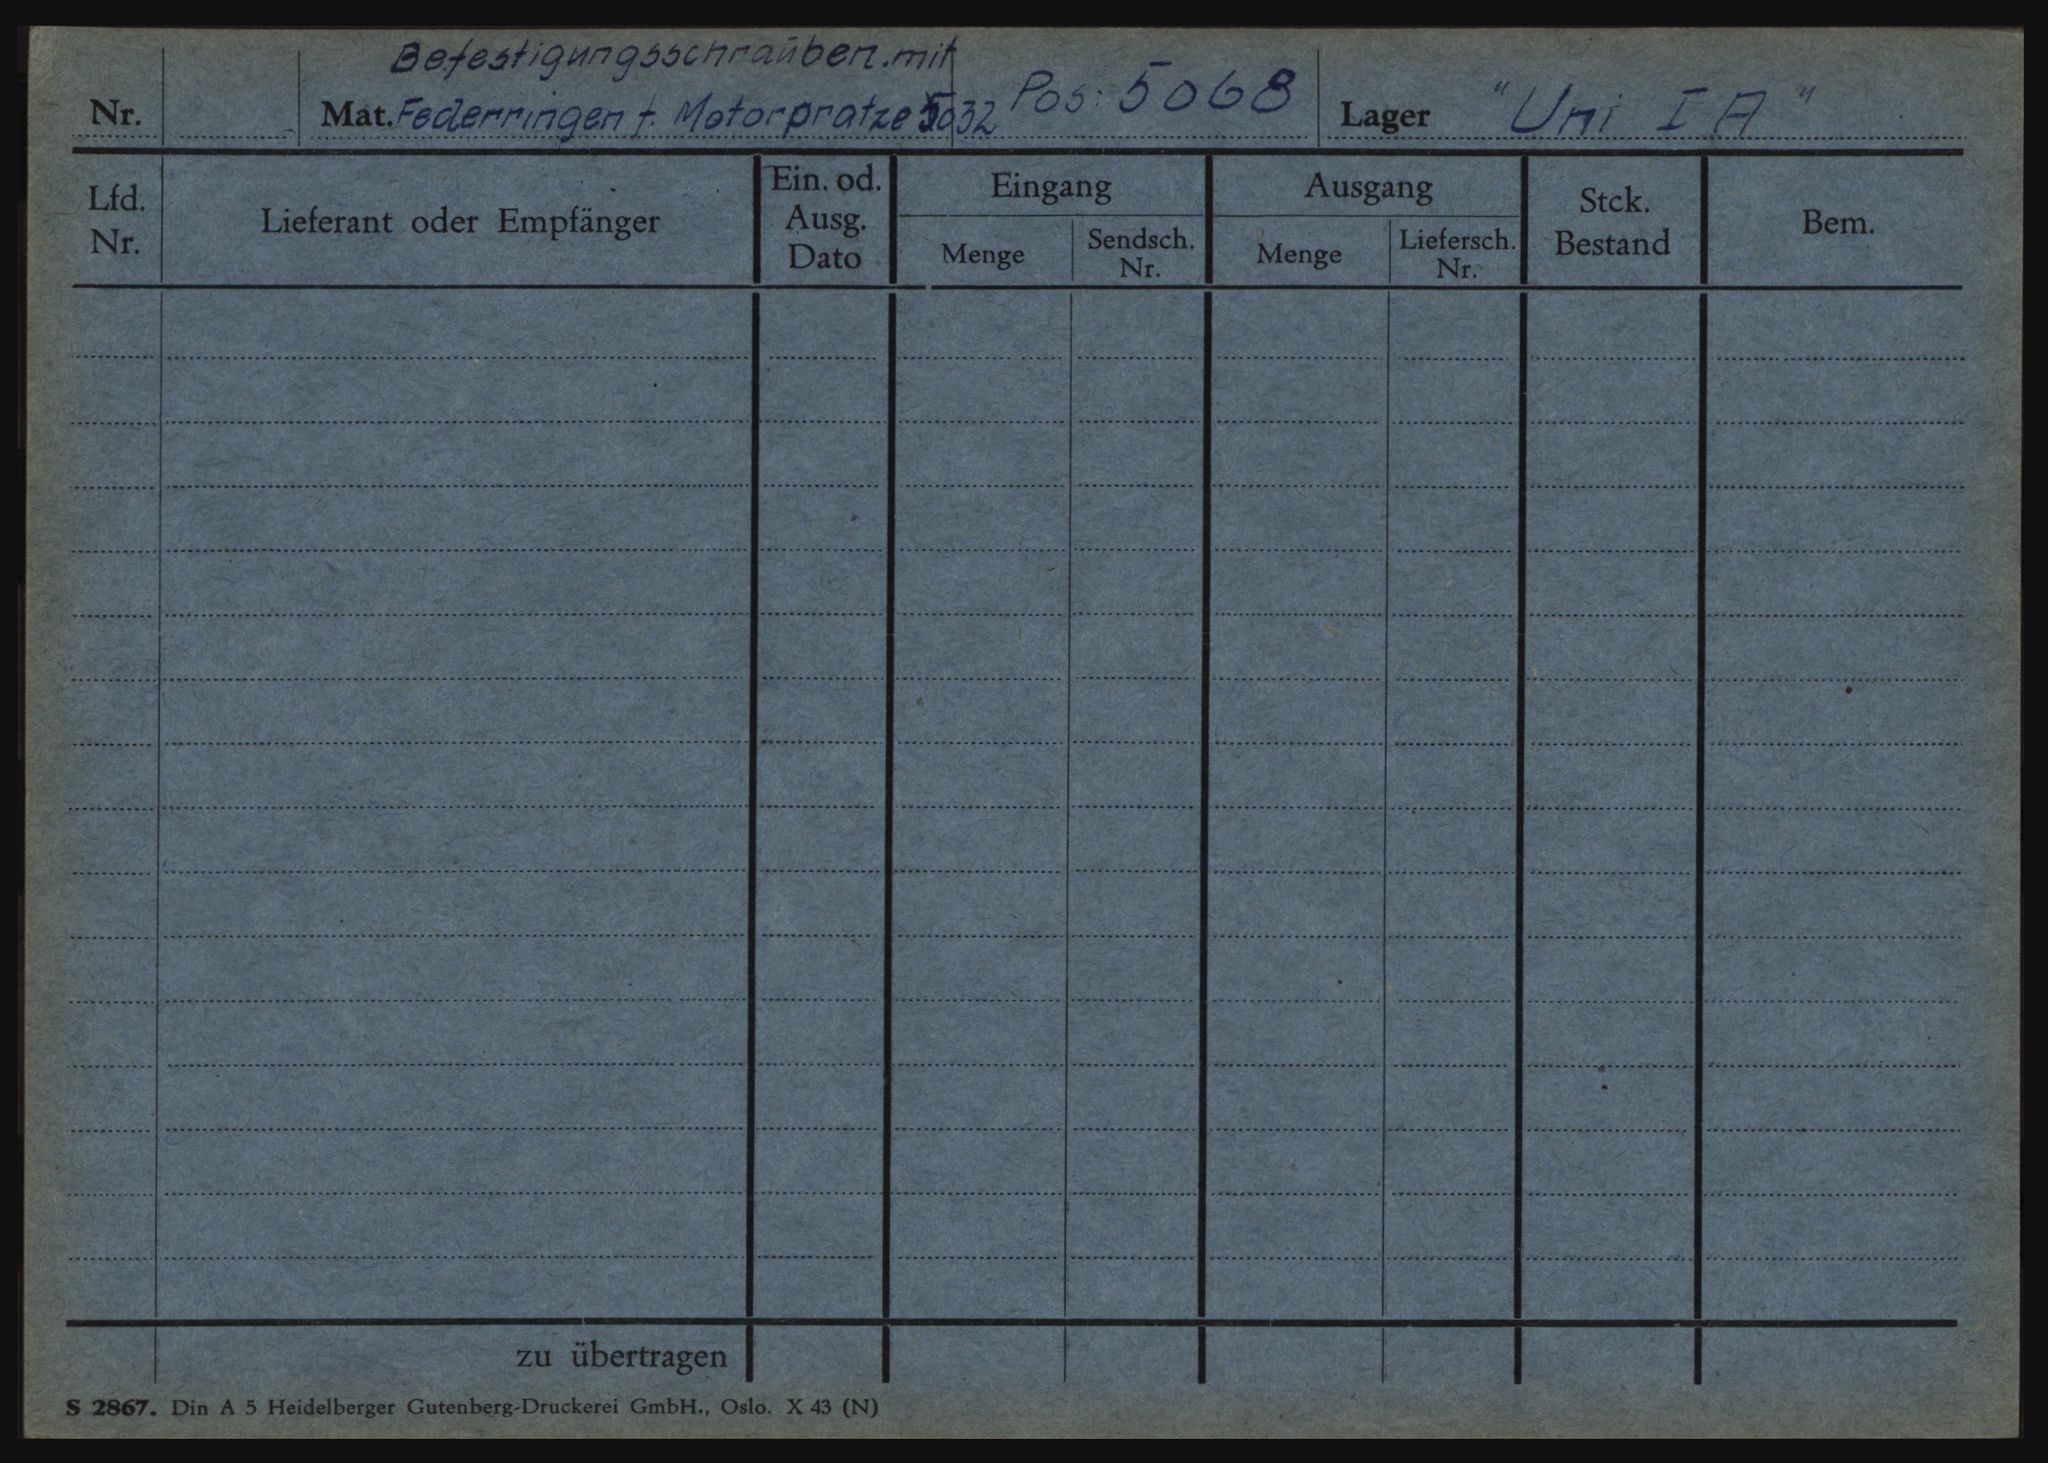 Befestigungsschraüben.mit
Nr. Mat. Federringen f. Motorpratze 5032 Pos: 5068 Lager "Uni I A"
Lfd. Nr.
Lieferant oder Empfänger
Ein. od. Ausg. Dato
Eingang
Menge
Sendsch. Nr.
Ausgang
Menge
Liefersch. Nr.
Stck. Bestand
Bem.
zu übertragen
S 2867. Din A 5 Heidelberger Gutenberg-Druckerei GmbH., Oslo. X 43 (N)